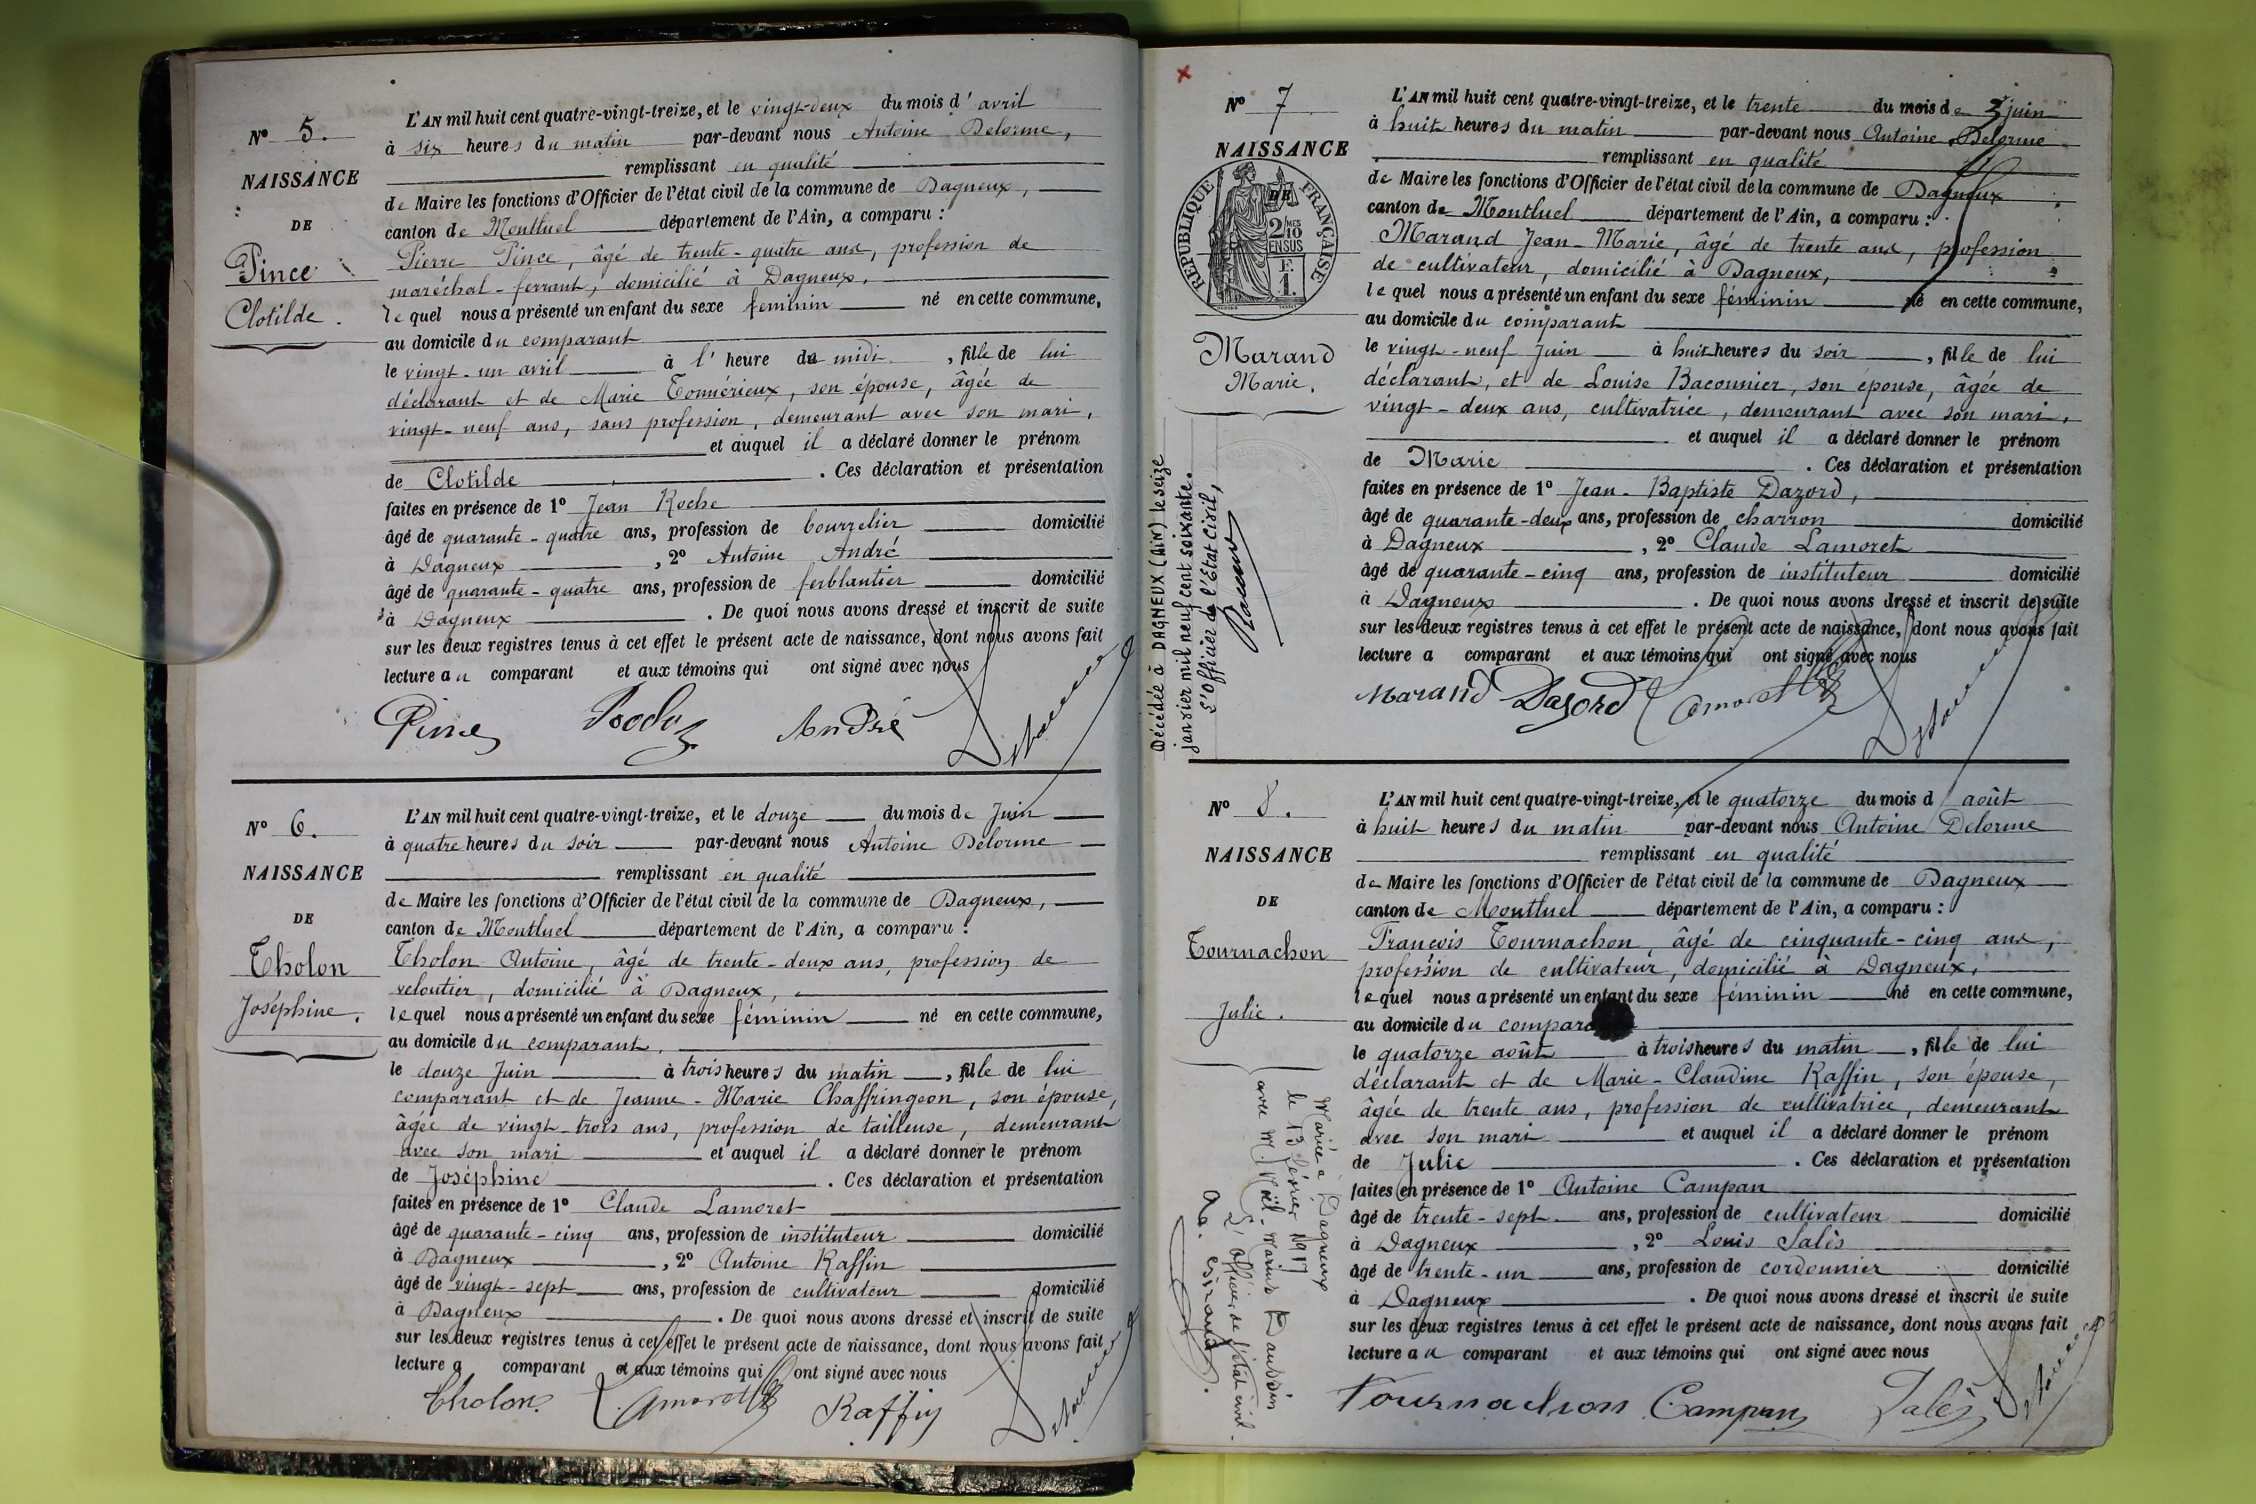 N° 5.
NAISSANCE
DE
Pince
Clotilde.
L'AN mil huit cent quatre-vingt-treize, et le vingt-deux du mois d'avril
à six heures du matin par-devant nous Antoine Delorme,
remplissant en qualité
de Maire les fonctions d'Officier de l'état civil de la commune de Dagneux,
canton de Montluel département de l'Ain, a comparu :
Pierre Pince, âgé de trente-quatre ans, profession de
maréchal-ferrant, domicilié à Dagneux,
lequel nous a présenté un enfant du sexe féminin né en cette commune,
au domicile du comparant
le vingt-un avril à l'heure de midi, fille de lui
déclarant et de Marie Tomérieux, son épouse, âgée de
vingt-neuf ans, sans profession, demeurant avec son mari,
et auquel il a déclaré donner le prénom
de Clotilde. Ces déclaration et présentation
faites en présence de 1° Jean Roche
âgé de quarante-quatre ans, profession de bourrelier domicilié
à Dagneux, 2° Antoine André
âgé de quarante-quatre ans, profession de ferblantier domicilié
à Dagneux. De quoi nous avons dressé et inscrit de suite
sur les deux registres tenus à cet effet le présent acte de naissance, dont nous avons fait
lecture au comparant et aux témoins qui ont signé avec nous
Pince André Delorme
N° 6.
NAISSANCE
DE
Tholon
Joséphine.
L'AN mil huit cent quatre-vingt-treize, et le douze du mois de Juin
à quatre heures du soir par-devant nous Antoine Delorme
remplissant en qualité
de Maire les fonctions d'Officier de l'état civil de la commune de Dagneux,
canton de Montluel département de l'Ain, a comparu :
Tholon Antoine, âgé de trente-deux ans, profession de
veloutier, domicilié à Dagneux,
lequel nous a présenté un enfant du sexe féminin né en cette commune,
au domicile du comparant,
le douze Juin à trois heures du matin, fille de lui
comparant et de Jeanne-Marie Chaffringeon, son épouse,
âgée de vingt-trois ans, profession de tailleuse, demeurant
avec son mari et auquel il a déclaré donner le prénom
de Joséphine. Ces déclaration et présentation
faites en présence de 1° Claude Lamoret
âgé de quarante-cinq ans, profession de instituteur domicilié
à Dagneux, 2° Antoine Raffin
âgé de vingt-sept ans, profession de cultivateur domicilié
à Dagneux. De quoi nous avons dressé et inscrit de suite
sur les deux registres tenus à cet effet le présent acte de naissance, dont nous avons fait
lecture a comparant et aux témoins qui ont signé avec nous
Tholon Lamoret Raffin Delorme
N° 7
NAISSANCE
DE
RÉPUBLIQUE FRANÇAISE
2/10 MES
EN SUS
F.
1.
Marand
Marie.
Décédée à DAGNEUX (Ain) le seize
janvier mil neuf cent soixante.
L'Officier de l'État civil,
L'AN mil huit cent quatre-vingt-treize, et le trente du mois de juin
à huit heures du matin par-devant nous Antoine Delorme
remplissant en qualité
de Maire les fonctions d'Officier de l'état civil de la commune de Dagneux
canton de Montluel département de l'Ain, a comparu :
Marand Jean-Marie, âgé de trente ans, profession
de cultivateur, domicilié à Dagneux,
lequel nous a présenté un enfant du sexe féminin né en cette commune,
au domicile du comparant
le vingt-neuf Juin à huit heures du soir, fille de lui
déclarant, et de Louise Baconnier, son épouse, âgée de
vingt-deux ans, cultivatrice, demeurant avec son mari,
et auquel il a déclaré donner le prénom
de Marie. Ces déclaration et présentation
faites en présence de 1° Jean-Baptiste Dazord,
âgé de quarante-deux ans, profession de charron domicilié
à Dagneux, 2° Claude Lamoret
âgé de quarante-cinq ans, profession de instituteur domicilié
à Dagneux. De quoi nous avons dressé et inscrit de suite
sur les deux registres tenus à cet effet le présent acte de naissance, dont nous avons fait
lecture a comparant et aux témoins qui ont signé avec nous
Marand Dazord Lamoret Delorme
N° 8.
NAISSANCE
DE
Tournachon
Julie.
Mariée à Dagneux
le 13 février 1917
avec M. Noël-Marius Daussin
L'Officier de l'état civil.
L'AN mil huit cent quatre-vingt-treize, et le quatorze du mois d'août
à huit heures du matin par-devant nous Antoine Delorme
remplissant en qualité
de Maire les fonctions d'Officier de l'état civil de la commune de Dagneux
canton de Montluel département de l'Ain, a comparu :
François Tournachon, âgé de cinquante-cinq ans,
profession de cultivateur, domicilié à Dagneux,
lequel nous a présenté un enfant du sexe féminin né en cette commune,
au domicile du compara
le quatorze août à trois heures du matin, fille de lui
déclarant et de Marie-Claudine Raffin, son épouse,
âgée de trente ans, profession de cultivatrice, demeurant
avec son mari et auquel il a déclaré donner le prénom
de Julie. Ces déclaration et présentation
faites en présence de 1° Antoine Campan
âgé de trente-sept ans, profession de cultivateur domicilié
à Dagneux, 2° Louis Salès
âgé de trente-un ans, profession de cordonnier domicilié
à Dagneux. De quoi nous avons dressé et inscrit de suite
sur les deux registres tenus à cet effet le présent acte de naissance, dont nous avons fait
lecture au comparant et aux témoins qui ont signé avec nous
Tournachon Campan Salès Delorme